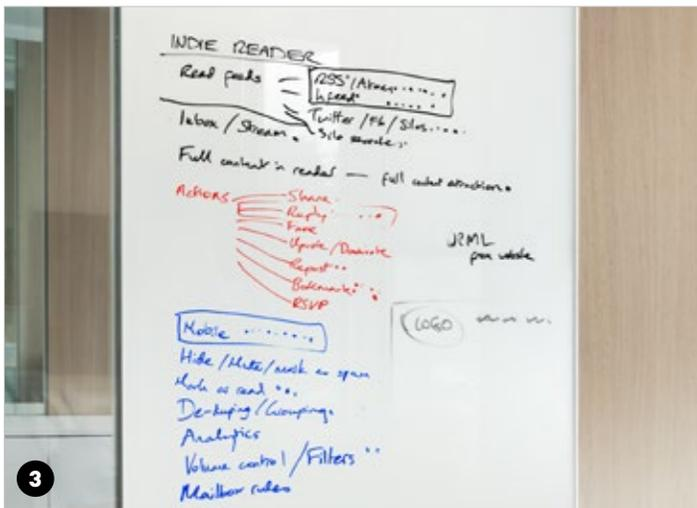 INDIE READER
Read feeds — RSS/Atom
hfeed
Twitter / Fb / Silos
Silo
Inbox / Stream
Full content in reader — full content extraction
Actions
Share
Reply
Fave
Upvote / Downvote
Repost
Bookmark
RSVP
from website
LOGO
Mobile
Hide / Mute / mark as spam
Mark as read
De-duping / Grouping
Analytics
Volume control / Filters
Mailbox rules
3